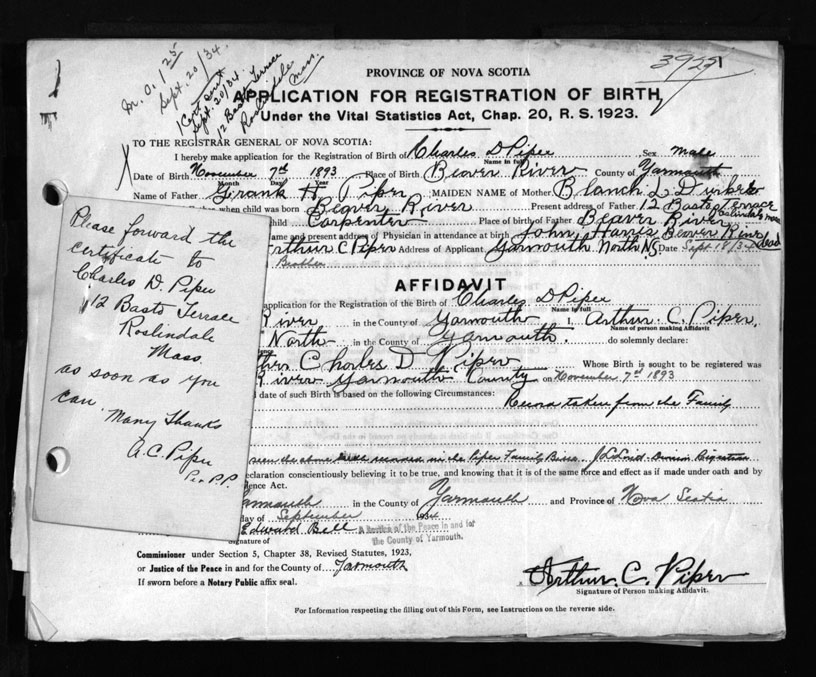 39251
M. O. 1/25
Sept. 20/34.
Cert sent
Sept. 20/34.
12 Basto Terrace
Roslindale
Mass.
PROVINCE OF NOVA SCOTIA
APPLICATION FOR REGISTRATION OF BIRTH
Under the Vital Statistics Act, Chap. 20, R. S. 1923.
TO THE REGISTRAR GENERAL OF NOVA SCOTIA:
I hereby make application for the Registration of Birth of Charles D Piper Sex male
Name in full
Date of Birth November 7th 1893 Place of Birth Beaver River County of Yarmouth
Month Day Year
Name of Father Frank H. Piper MAIDEN NAME of Mother Blanch L. Durkee
when child was born Beaver River Present address of Father 12 Basto Terrace
Roslindale Mass
child Carpenter Place of birth of Father Beaver River
name and present address of Physician in attendance at birth John Harris Beaver River dead
Arthur C Piper Address of Applicant Yarmouth North N.S. Date Sept. 18/34
Brother
Please forward the
certificate to
Charles D. Piper
12 Basto Terrace
Roslindale
Mass.
as soon as you
can
Many Thanks
A. C. Piper
Per P.P.
AFFIDAVIT
application for the Registration of the Birth of Charles D Piper
Name in full
River in the County of Yarmouth I, Arthur C. Piper,
Name of person making Affidavit
North in the County of Yarmouth. do solemnly declare:
Charles D Piper Whose Birth is sought to be registered was
River Yarmouth County on November 7th 1893
date of such Birth is based on the following Circumstances:
taken from the Family
seen the above recorded in the Piper Family Bible. Division Registrar
declaration conscientiously believing it to be true, and knowing that it is of the same force and effect as if made under oath and by
Evidence Act.
Yarmouth in the County of Yarmouth and Province of Nova Scotia
day of September 1934
Edward Bell A Justice of the Peace in and for
the County of Yarmouth.
Signature of
Commissioner under Section 5, Chapter 38, Revised Statutes, 1923,
or Justice of the Peace in and for the County of Yarmouth
If sworn before a Notary Public affix seal.
Arthur. C. Piper
Signature of Person making Affidavit.
For Information respecting the filling out of this Form, see Instructions on the reverse side.